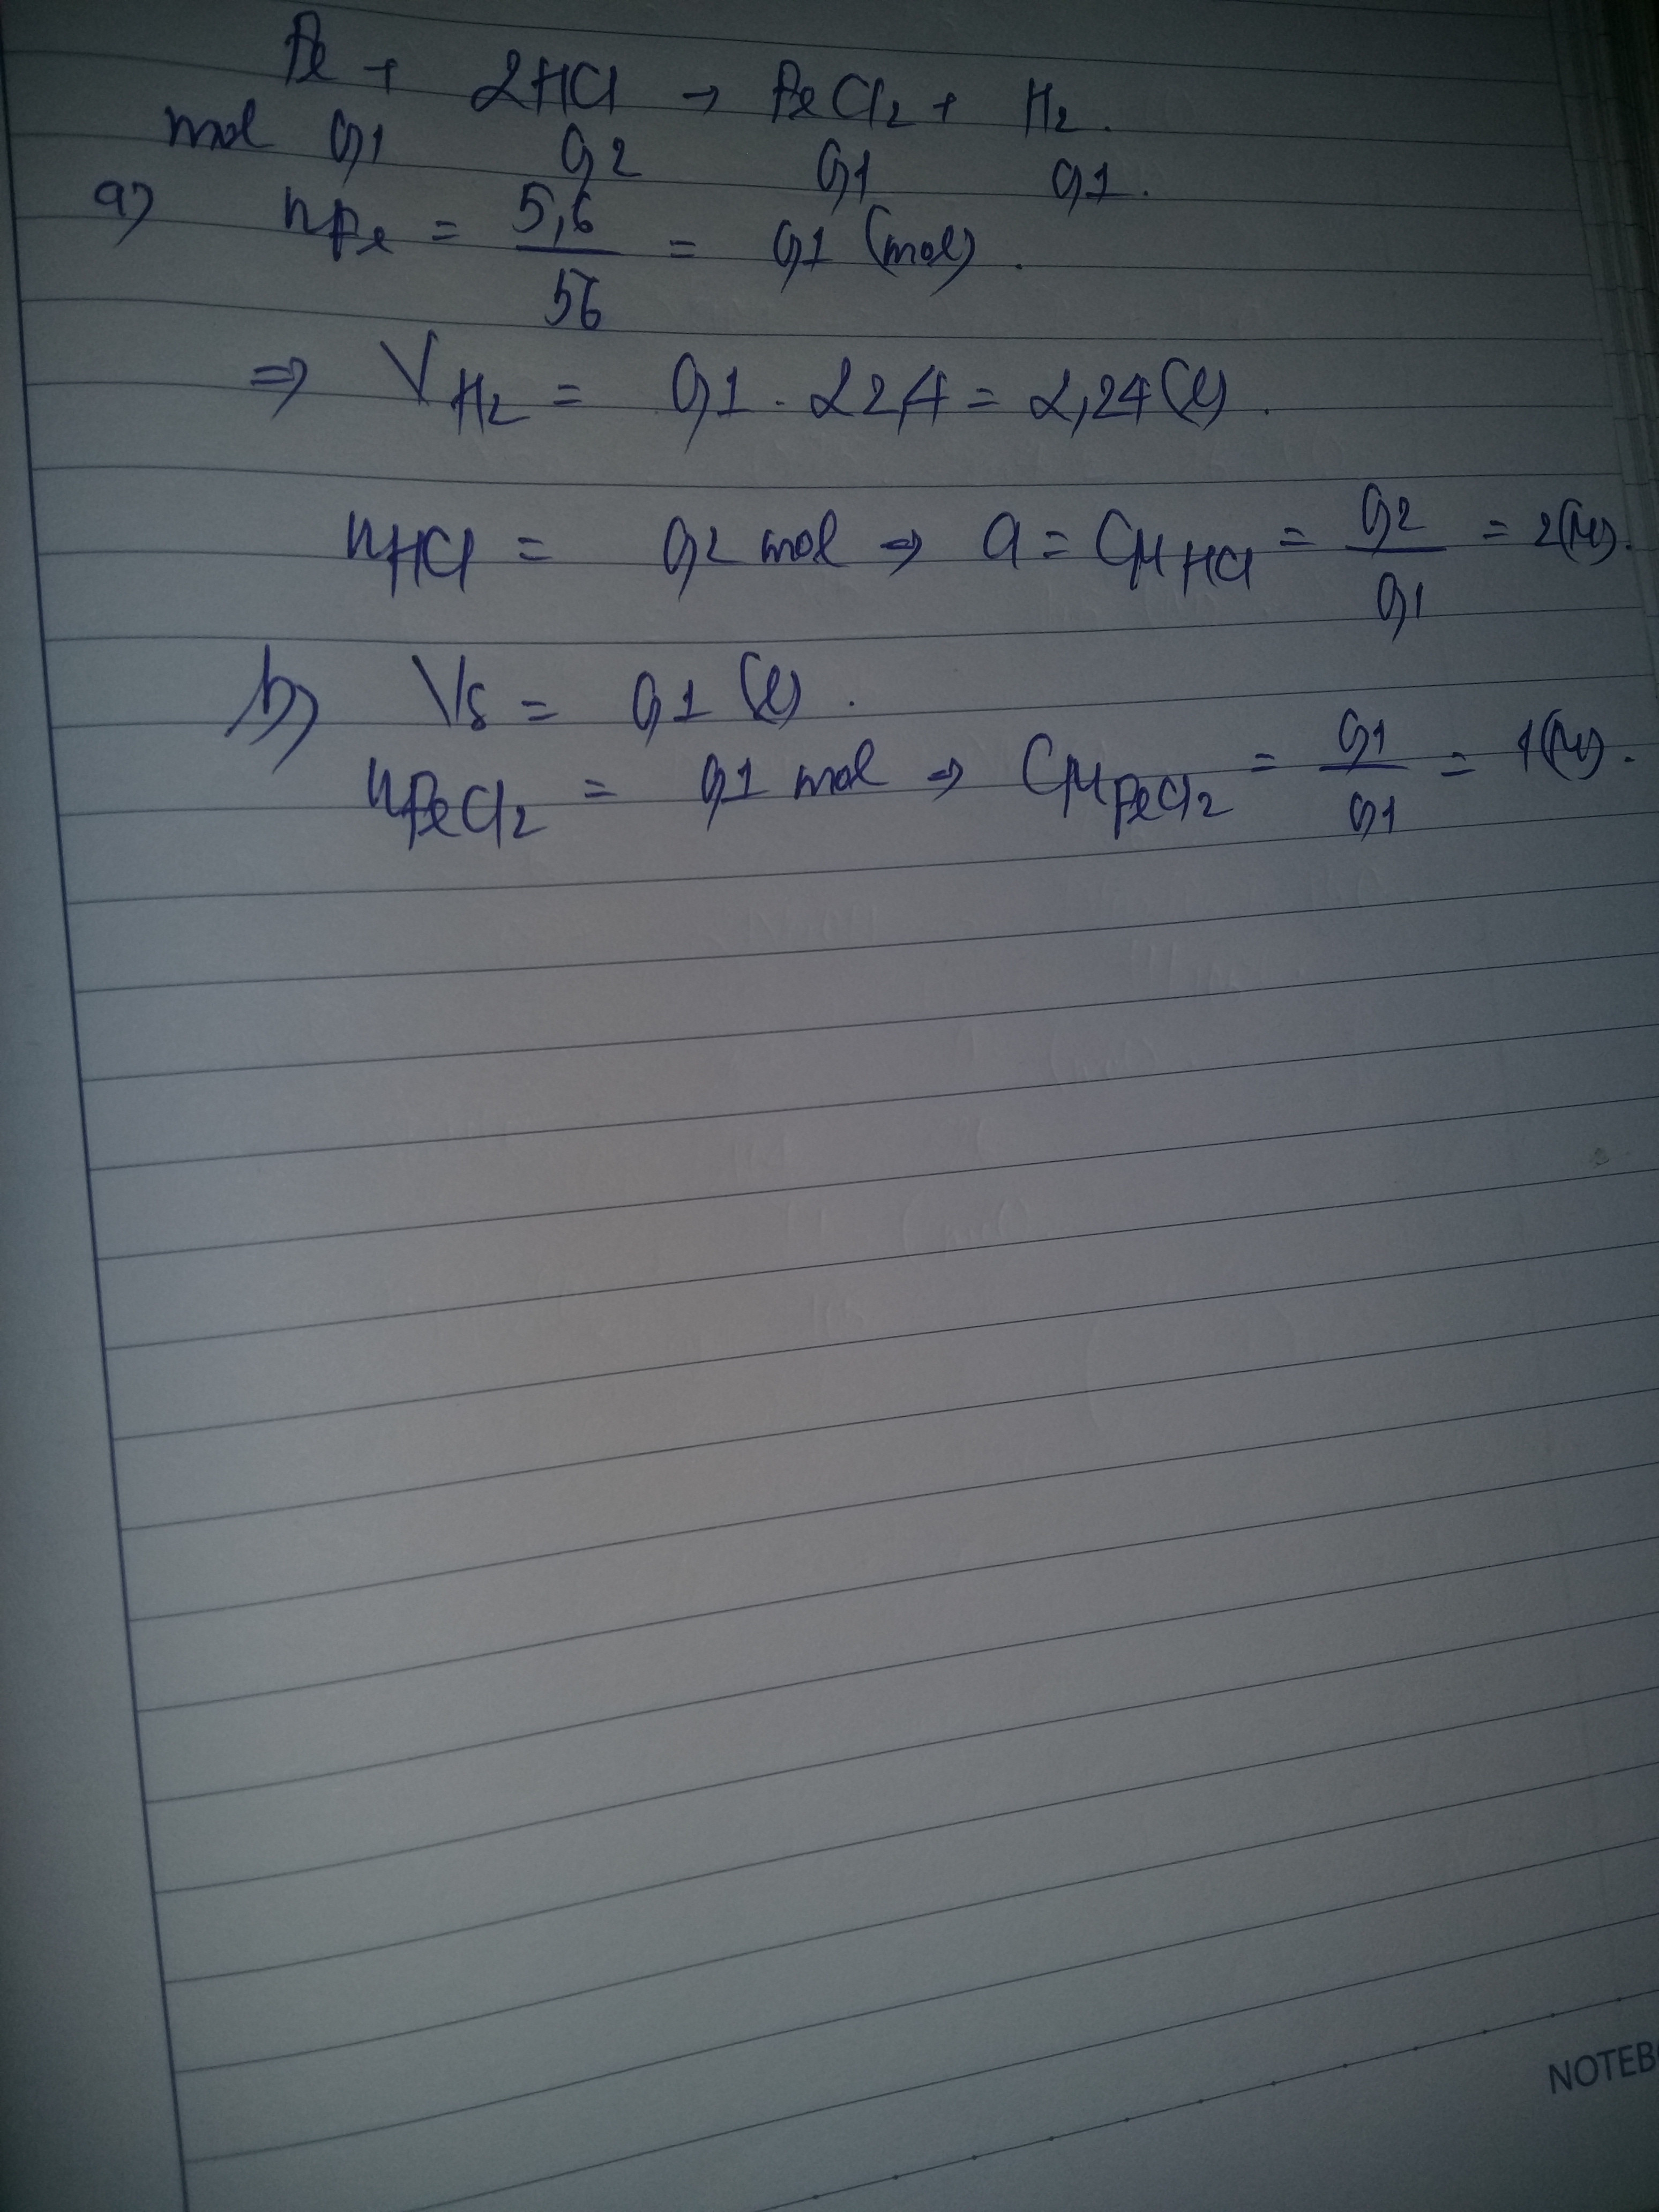 Fe + 2HCl → FeCl2 + H2.
mol 0,1 0,2 0,1 0,1.
a) nFe = 5,6/56 = 0,1 (mol).
⇒ VH2 = 0,1 . 22,4 = 2,24 (l).
nHCl = 0,2 mol ⇒ a = CM HCl = 0,2/0,1 = 2(M).
b) Vs = 0,1 (l).
nFeCl2 = 0,1 mol ⇒ CM FeCl2 = 0,1/0,1 = 1(M).
NOTEB